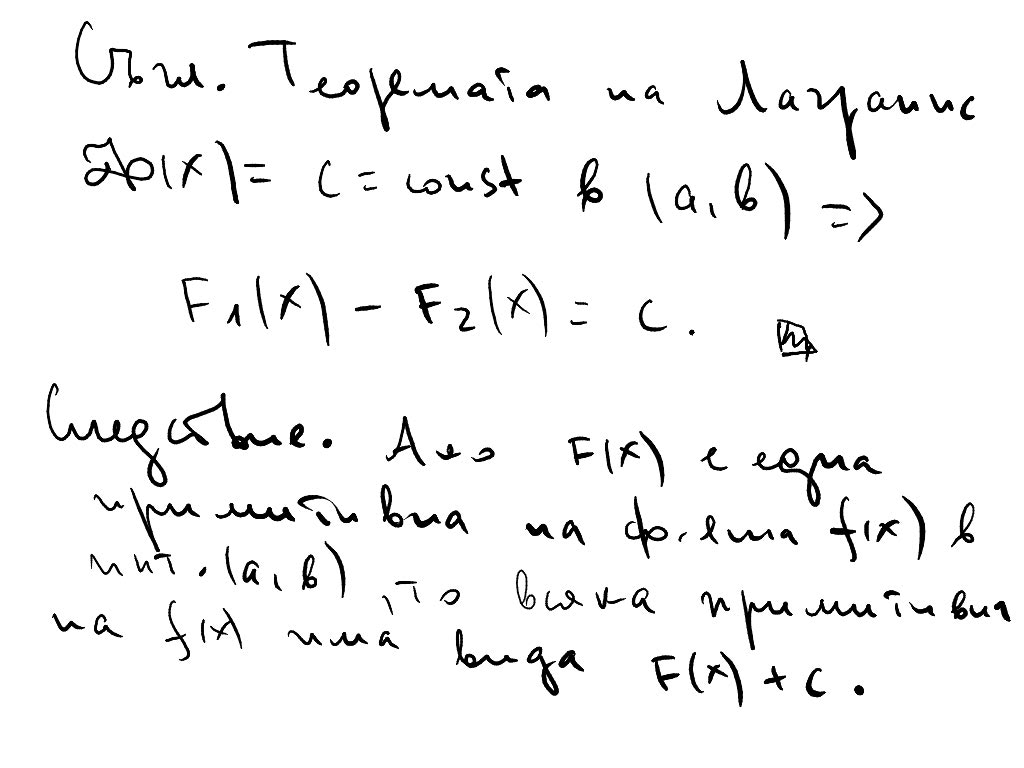 Съгл. Теоремата на Лагранж
φ(x) = c = const в (a, b) =>
F₁(x) - F₂(x) = c.
Следствие. Ако F(x) е една
примитивна на ф-ята f(x) в
инт. (a, b), то всяка примитивна
на f(x) има вида F(x) + c.